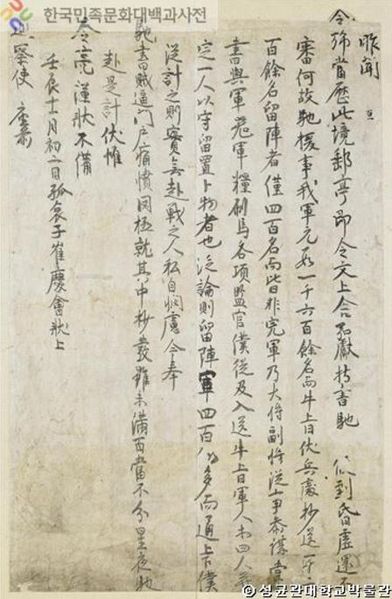 한국민족문화대백과사전
昨聞
令旆當歷此境郵亭卽令文上舍 獻持書馳 到昏虛還
審何故馳援事我軍元 一千六百餘名而牛上日伏兵處抄送一千
百餘名留陣者僅四百名而此日非完軍乃大將副將從事參謀
書與軍 軍糧刷馬各項監官僕從及入送牛上日軍人 四人
定一人以守留置卜物者也泛論則留陣軍四百 多而通上下僕
從計之則實無赴戰之人私自悶慮今奉
馳書賊逼門戶痛憤罔極就其中抄發雖未滿百當不分星夜馳
赴是計伏惟
令亮謹狀不備
壬辰十一月初二日孤哀子崔慶會狀上
巡察使
ⓒ성균관대학교박물관